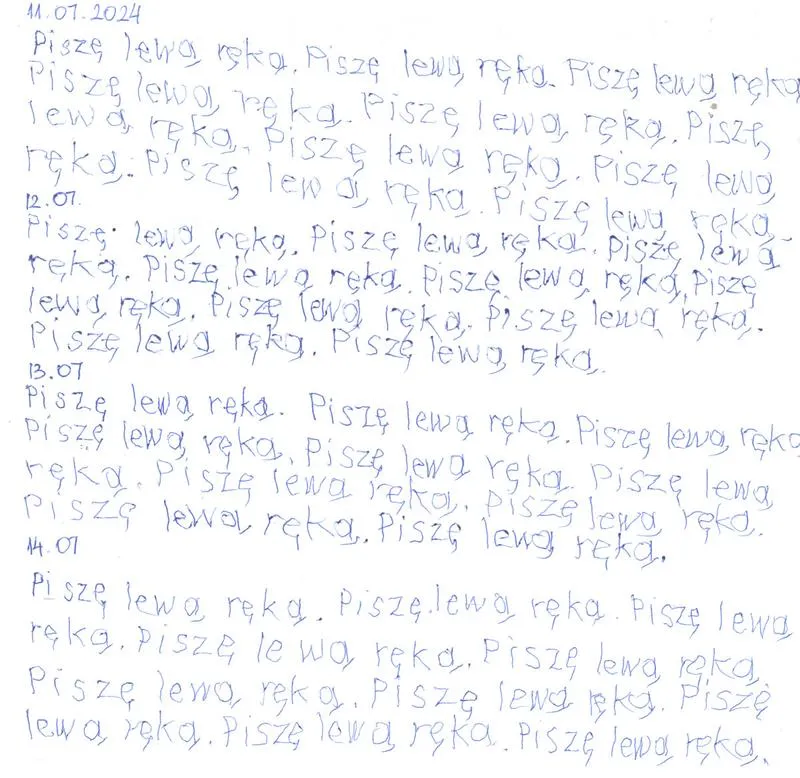 11.07.2024
Piszę lewą ręką. Piszę lewą ręką. Piszę lewą ręką
Piszę lewą ręką. Piszę lewą ręką. Piszę
lewą ręką. Piszę lewą ręką. Piszę lewą
ręką. Piszę lewą ręką. Piszę lewą ręką.
12.07.
Piszę lewą ręką. Piszę lewą ręką. Piszę lewą
ręką. Piszę lewą ręką. Piszę lewą ręką. Piszę
lewą ręką. Piszę lewą ręką. Piszę lewą ręką.
Piszę lewą ręką. Piszę lewą ręką.
13.07
Piszę lewą ręką. Piszę lewą ręką. Piszę lewą ręką
Piszę lewą ręką. Piszę lewą ręką. Piszę lewą
ręką. Piszę lewą ręką. Piszę lewą ręką.
Piszę lewą ręką. Piszę lewą ręką.
14.07
Piszę lewą ręką. Piszę lewą ręką. Piszę lewą
ręką. Piszę lewą ręką. Piszę lewą ręką.
Piszę lewą ręką. Piszę lewą ręką. Piszę
lewą ręką. Piszę lewą ręką. Piszę lewą ręką.